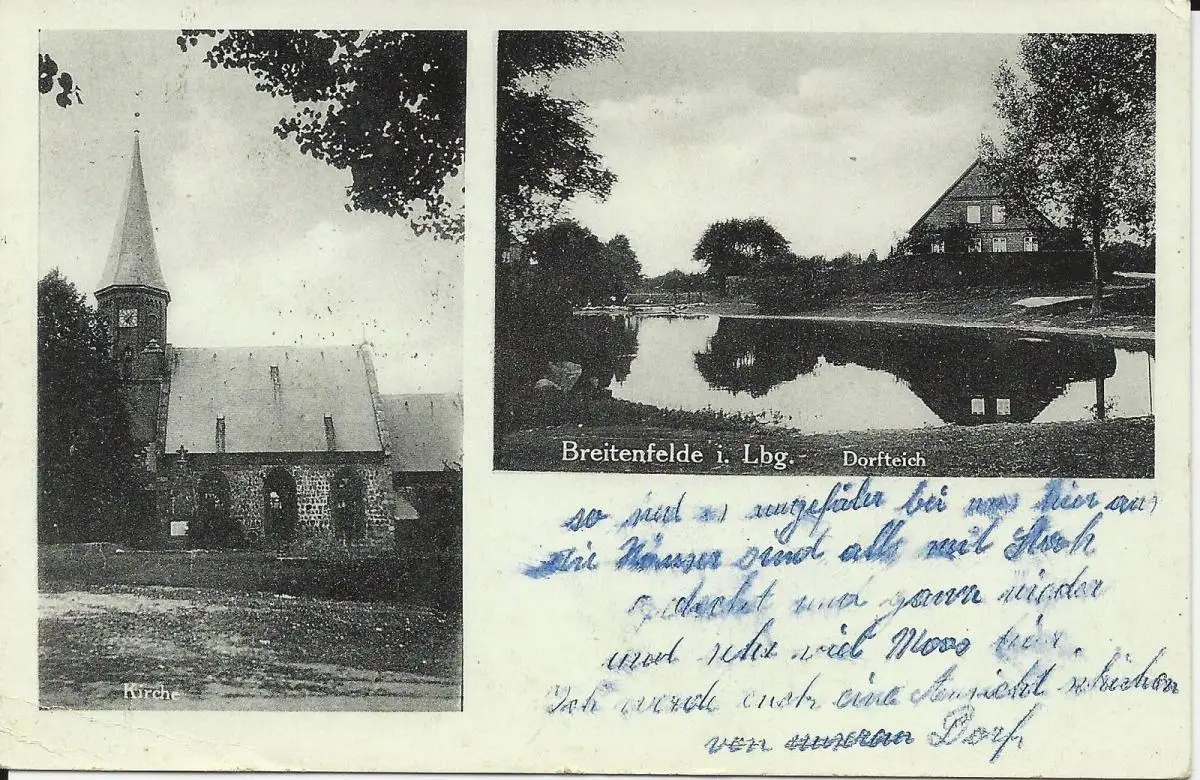 Kirche
Breitenfelde i. Lbg. Dorfteich
so sieht es ungefähr bei uns hier aus
die Häuser sind alle mit Stroh
gedeckt und ganz nieder
und sehr viel Moos hier.
Ich werde euch eine Ansicht schicken
von unseran Dorf